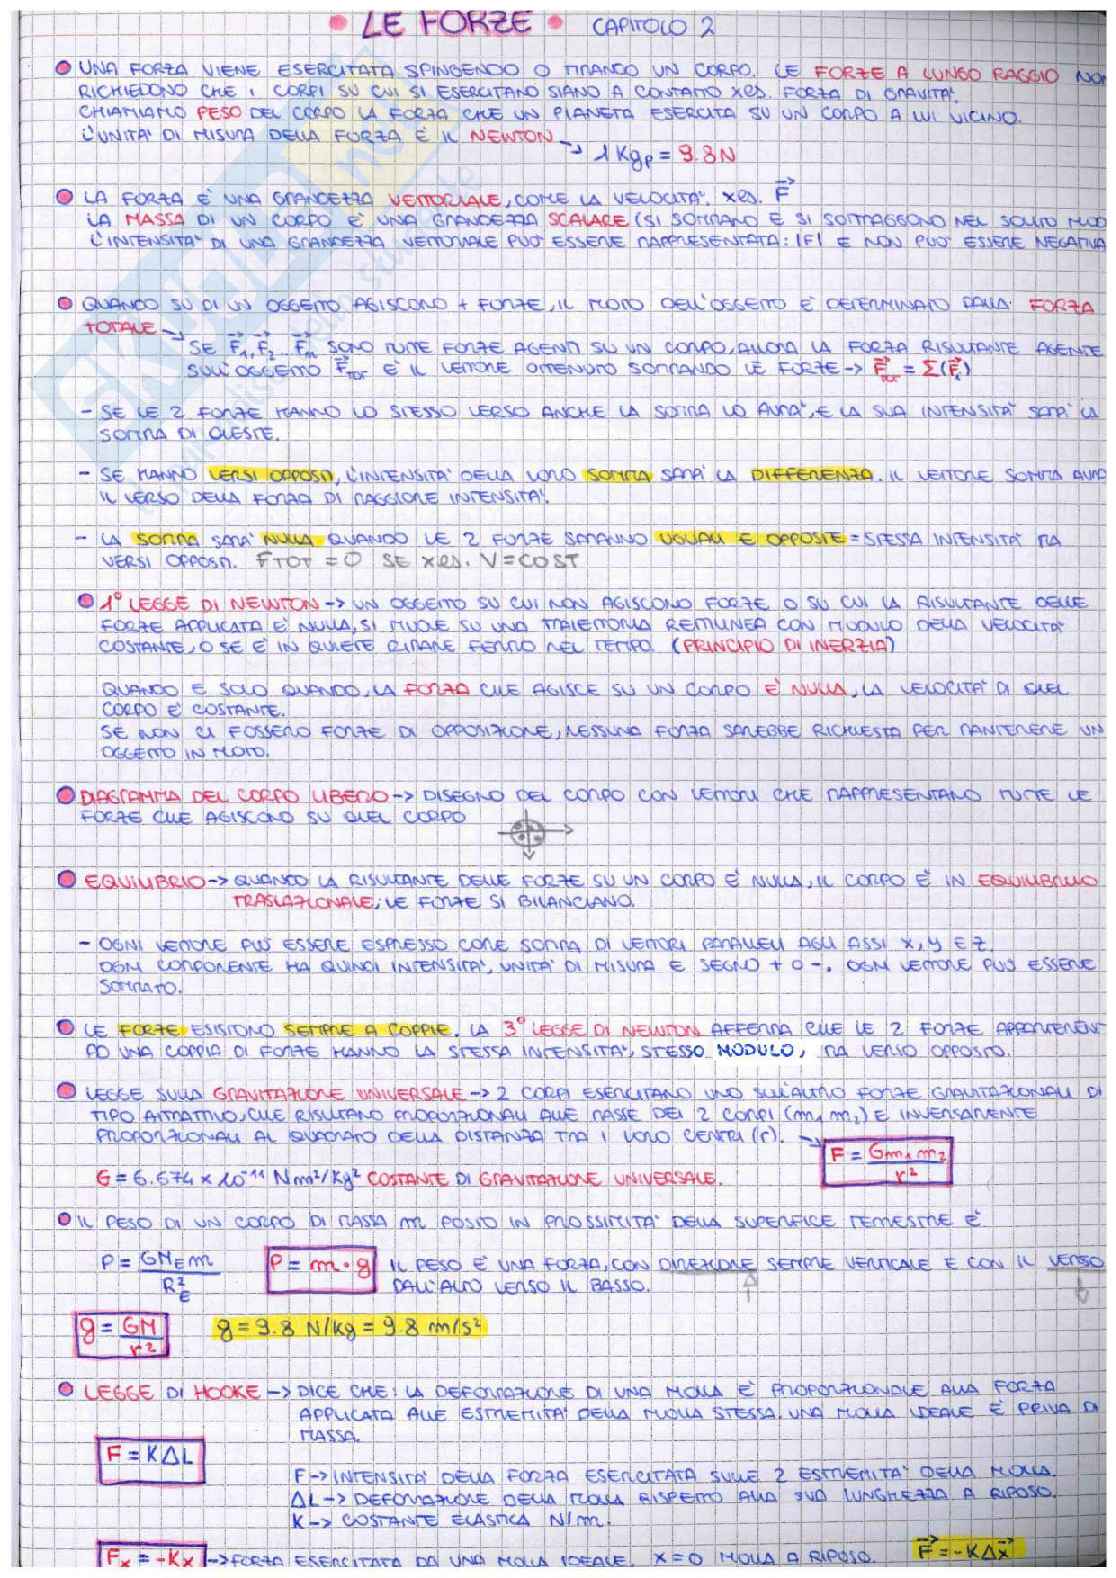 • LE FORZE • CAPITOLO 2
• UNA FORZA VIENE ESERCITATA SPINGENDO O TIRANDO UN CORPO. LE FORZE A LUNGO RAGGIO NON
RICHIEDONO CHE I CORPI SU CUI SI ESERCITANO SIANO A CONTATTO xes. FORZA DI GRAVITA'.
CHIAMIAMO PESO DEL CORPO LA FORZA CHE UN PIANETA ESERCITA SU UN CORPO A LUI VICINO.
L'UNITA' DI MISURA DELLA FORZA È IL NEWTON → 1 Kgp = 9.8 N
• LA FORZA È UNA GRANDEZZA VETTORIALE, COME LA VELOCITA'. xes. F⃗
LA MASSA DI UN CORPO E' UNA GRANDEZZA SCALARE (SI SOMMANO E SI SOTTRAGGONO NEL SOLITO MODO
L'INTENSITA' DI UNA GRANDEZZA VETTORIALE PUO' ESSERE RAPPRESENTATA: |F| E NON PUO' ESSERE NEGATIVA
• QUANDO SU DI UN OGGETTO AGISCONO + FORZE, IL MOTO DELL'OGGETTO E' DETERMINATO DALLA FORZA
TOTALE →
SE F⃗1, F⃗2 ... F⃗n SONO TUTTE FORZE AGENTI SU UN CORPO, ALLORA LA FORZA RISULTANTE AGENTE
SULL'OGGETTO F⃗TOT E' IL VETTORE OTTENUTO SOMMANDO LE FORZE → F⃗TOT = Σ(F⃗i)
- SE LE 2 FORZE HANNO LO STESSO VERSO ANCHE LA SOMMA LO AVRA', E LA SUA INTENSITA' SARA' LA
SOMMA DI QUESTE.
- SE HANNO VERSI OPPOSTI, L'INTENSITA' DELLA LORO SOMMA SARA' LA DIFFERENZA. IL VETTORE SOMMA AVRA
IL VERSO DELLA FORZA DI MAGGIORE INTENSITA'.
- LA SOMMA SARA' NULLA QUANDO LE 2 FORZE SARANNO UGUALI E OPPOSTE = STESSA INTENSITA' MA
VERSI OPPOSTI. FTOT = 0 SE xes. V = COST
• 1° LEGGE DI NEWTON → UN OGGETTO SU CUI NON AGISCONO FORZE O SU CUI LA RISULTANTE DELLE
FORZE APPLICATA E' NULLA, SI MUOVE SU UNA TRAIETTORIA RETTILINEA CON MODULO DELLA VELOCITA'
COSTANTE, O SE E' IN QUIETE RIMANE FERMO NEL TEMPO. (PRINCIPIO DI INERZIA)
QUANDO E SOLO QUANDO, LA FORZA CHE AGISCE SU UN CORPO E' NULLA, LA VELOCITA' DI QUEL
CORPO E' COSTANTE.
SE NON CI FOSSERO FORZE DI OPPOSIZIONE, NESSUNA FORZA SAREBBE RICHIESTA PER MANTENERE UN
OGGETTO IN MOTO.
• DIAGRAMMA DEL CORPO LIBERO → DISEGNO DEL CORPO CON VETTORI CHE RAPPRESENTANO TUTTE LE
FORZE CHE AGISCONO SU QUEL CORPO
• EQUILIBRIO → QUANDO LA RISULTANTE DELLE FORZE SU UN CORPO E' NULLA, IL CORPO E' IN EQUILIBRIO
TRASLAZIONALE; LE FORZE SI BILANCIANO.
- OGNI VETTORE PUO' ESSERE ESPRESSO COME SOMMA DI VETTORI PARALLELI AGLI ASSI X, Y E Z.
OGNI COMPONENTE HA QUINDI INTENSITA', UNITA' DI MISURA E SEGNO + O -. OGNI VETTORE PUO' ESSERE
SOMMATO.
• LE FORZE ESISTONO SEMPRE A COPPIE. LA 3° LEGGE DI NEWTON AFFERMA CHE LE 2 FORZE APPARTENENT
AD UNA COPPIA DI FORZE HANNO LA STESSA INTENSITA', STESSO MODULO, MA VERSO OPPOSTO.
• LEGGE SULLA GRAVITAZIONE UNIVERSALE → 2 CORPI ESERCITANO UNO SULL'ALTRO FORZE GRAVITAZIONALI DI
TIPO ATTRATTIVO, CHE RISULTANO PROPORZIONALI ALLE MASSE DEI 2 CORPI (m1 m2) E INVERSAMENTE
PROPORZIONALI AL QUADRATO DELLA DISTANZA TRA I LORO CENTRI (r). → F = Gm1 m2 / r²
G = 6.674 × 10⁻¹¹ Nm²/Kg² COSTANTE DI GRAVITAZIONE UNIVERSALE.
• IL PESO DI UN CORPO DI MASSA m POSTO IN PROSSIMITA' DELLA SUPERFICE TERRESTRE E'
P = GMEm / RE² P = m · g IL PESO E' UNA FORZA, CON DIREZIONE SEMPRE VERTICALE E CON IL VERSO
DALL'ALTO VERSO IL BASSO.
g = GM / r² g = 9.8 N/Kg = 9.8 m/s²
• LEGGE DI HOOKE → DICE CHE: LA DEFORMAZIONE DI UNA MOLLA E' PROPORZIONALE ALLA FORZA
APPLICATA ALLE ESTREMITA' DELLA MOLLA STESSA. UNA MOLLA IDEALE E' PRIVA DI
MASSA.
F = KΔL
F → INTENSITA' DELLA FORZA ESERCITATA SULLE 2 ESTREMITA' DELLA MOLLA.
ΔL → DEFORMAZIONE DELLA MOLLA RISPETTO ALLA SUA LUNGHEZZA A RIPOSO.
K → COSTANTE ELASTICA N/m.
Fx = -Kx → FORZA ESERCITATA DA UNA MOLLA IDEALE. X=0 MOLLA A RIPOSO. F⃗ = -KΔx⃗